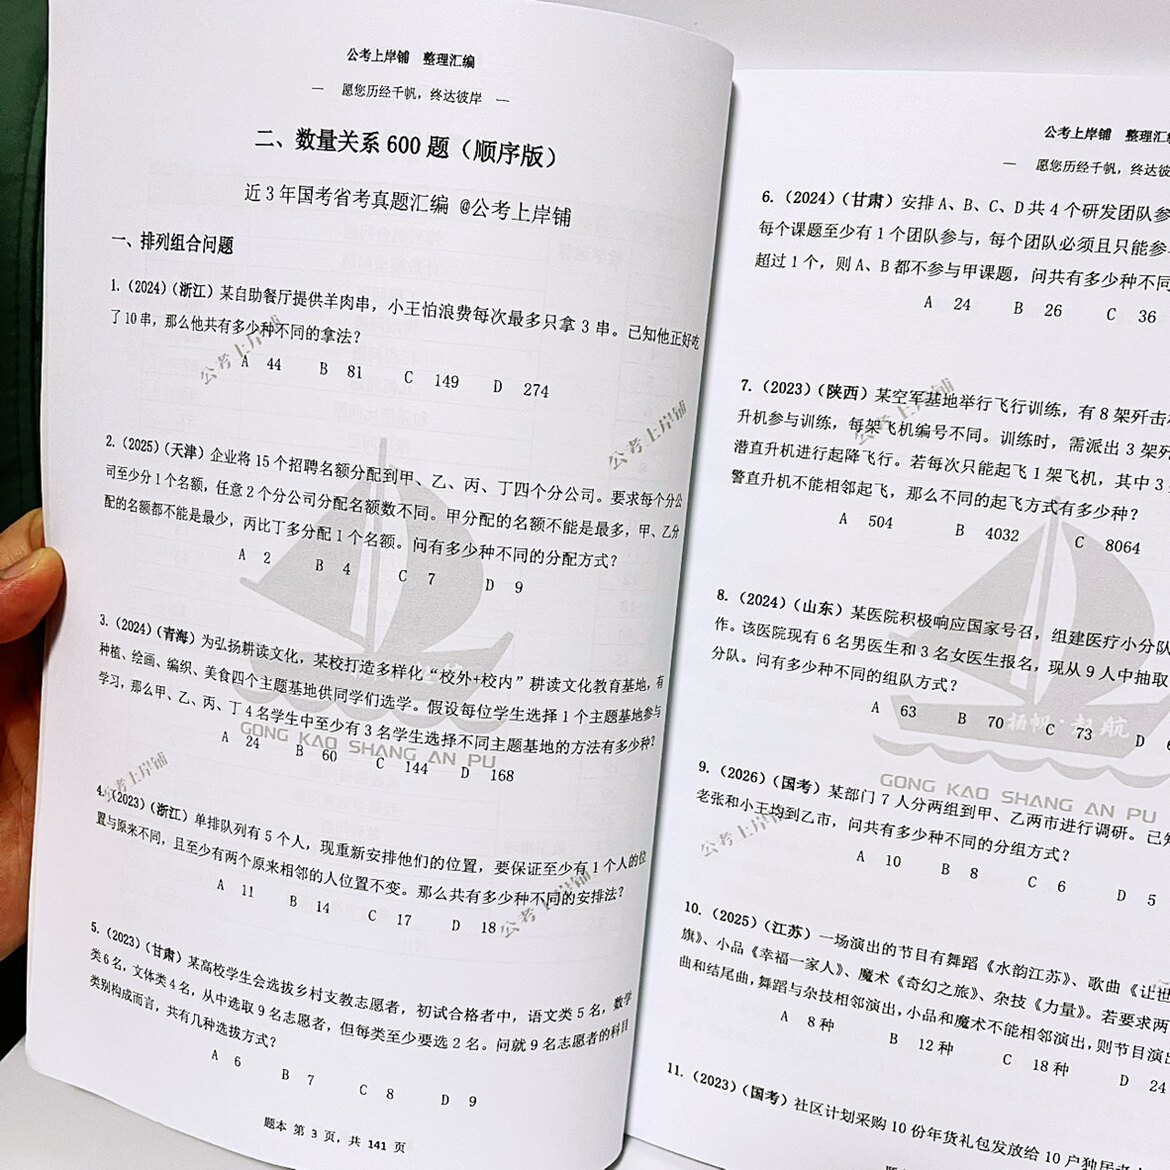 公考上岸铺 整理汇编
— 愿您历经千帆，终达彼岸 —
二、数量关系 600 题（顺序版）
近 3 年国考省考真题汇编 @公考上岸铺
一、排列组合问题
1.（2024）（浙江）某自助餐厅提供羊肉串，小王怕浪费每次最多只拿 3 串。已知他正好吃
了 10 串，那么他共有多少种不同的拿法？
A 44 B 81 C 149 D 274
2.（2025）（天津）企业将 15 个招聘名额分配到甲、乙、丙、丁四个分公司。要求每个分公
司至少分 1 个名额，任意 2 个分公司分配名额数不同。甲分配的名额不能是最多，甲、乙分
配的名额都不能是最少，丙比丁多分配 1 个名额。问有多少种不同的分配方式？
A 2 B 4 C 7 D 9
3.（2024）（青海）为弘扬耕读文化，某校打造多样化“校外+校内”耕读文化教育基地，有
种植、绘画、编织、美食四个主题基地供同学们选学。假设每位学生选择 1 个主题基地参与
学习，那么甲、乙、丙、丁 4 名学生中至少有 3 名学生选择不同主题基地的方法有多少种？
A 24 B 60 C 144 D 168
4.（2023）（浙江）单排队列有 5 个人，现重新安排他们的位置，要保证至少有 1 个人的位
置与原来不同，且至少有两个原来相邻的人位置不变。那么共有多少种不同的安排法？
A 11 B 14 C 17 D 18
5.（2023）（甘肃）某高校学生会选拔乡村支教志愿者，初试合格者中，语文类 5 名，数学
类 6 名，文体类 4 名，从中选取 9 名志愿者，但每类至少要选 2 名。问就 9 名志愿者的科目
类别构成而言，共有几种选拔方式？
A 6 B 7 C 8 D 9
题本 第 3 页，共 141 页
公考上岸铺
公考上岸铺
公考上岸铺
公考上岸铺
GONG KAO SHANG AN PU
公考上岸铺 整理汇编
— 愿您历经千帆，终达彼
6.（2024）（甘肃）安排 A、B、C、D 共 4 个研发团队参
每个课题至少有 1 个团队参与，每个团队必须且只能参
超过 1 个，则 A、B 都不参与甲课题，问共有多少种不同
A 24 B 26 C 36
7.（2023）（陕西）某空军基地举行飞行训练，有 8 架歼击
升机参与训练，每架飞机编号不同。训练时，需派出 3 架歼
潜直升机进行起降飞行。若每次只能起飞 1 架飞机，其中 3
警直升机不能相邻起飞，那么不同的起飞方式有多少种？
A 504 B 4032 C 8064
8.（2024）（山东）某医院积极响应国家号召，组建医疗小分队
作。该医院现有 6 名男医生和 3 名女医生报名，现从 9 人中抽取
分队。问有多少种不同的组队方式？
A 63 B 70 C 73 D
9.（2026）（国考）某部门 7 人分两组到甲、乙两市进行调研。已知
老张和小王均到乙市，问共有多少种不同的分组方式？
A 10 B 8 C 6 D 5
10.（2025）（江苏）一场演出的节目有舞蹈《水韵江苏》、歌曲《让世
旗》、小品《幸福一家人》、魔术《奇幻之旅》、杂技《力量》。若要求两
曲和结尾曲，舞蹈与杂技相邻演出，小品和魔术不能相邻演出，则节目演出
A 8 种 B 12 种 C 18 种 D 24
11.（2023）（国考）社区计划采购 10 份年货礼包发放给 10 户独居老
公考上岸铺
公考上岸铺
扬帆·起航
GONG KAO SHANG AN PU